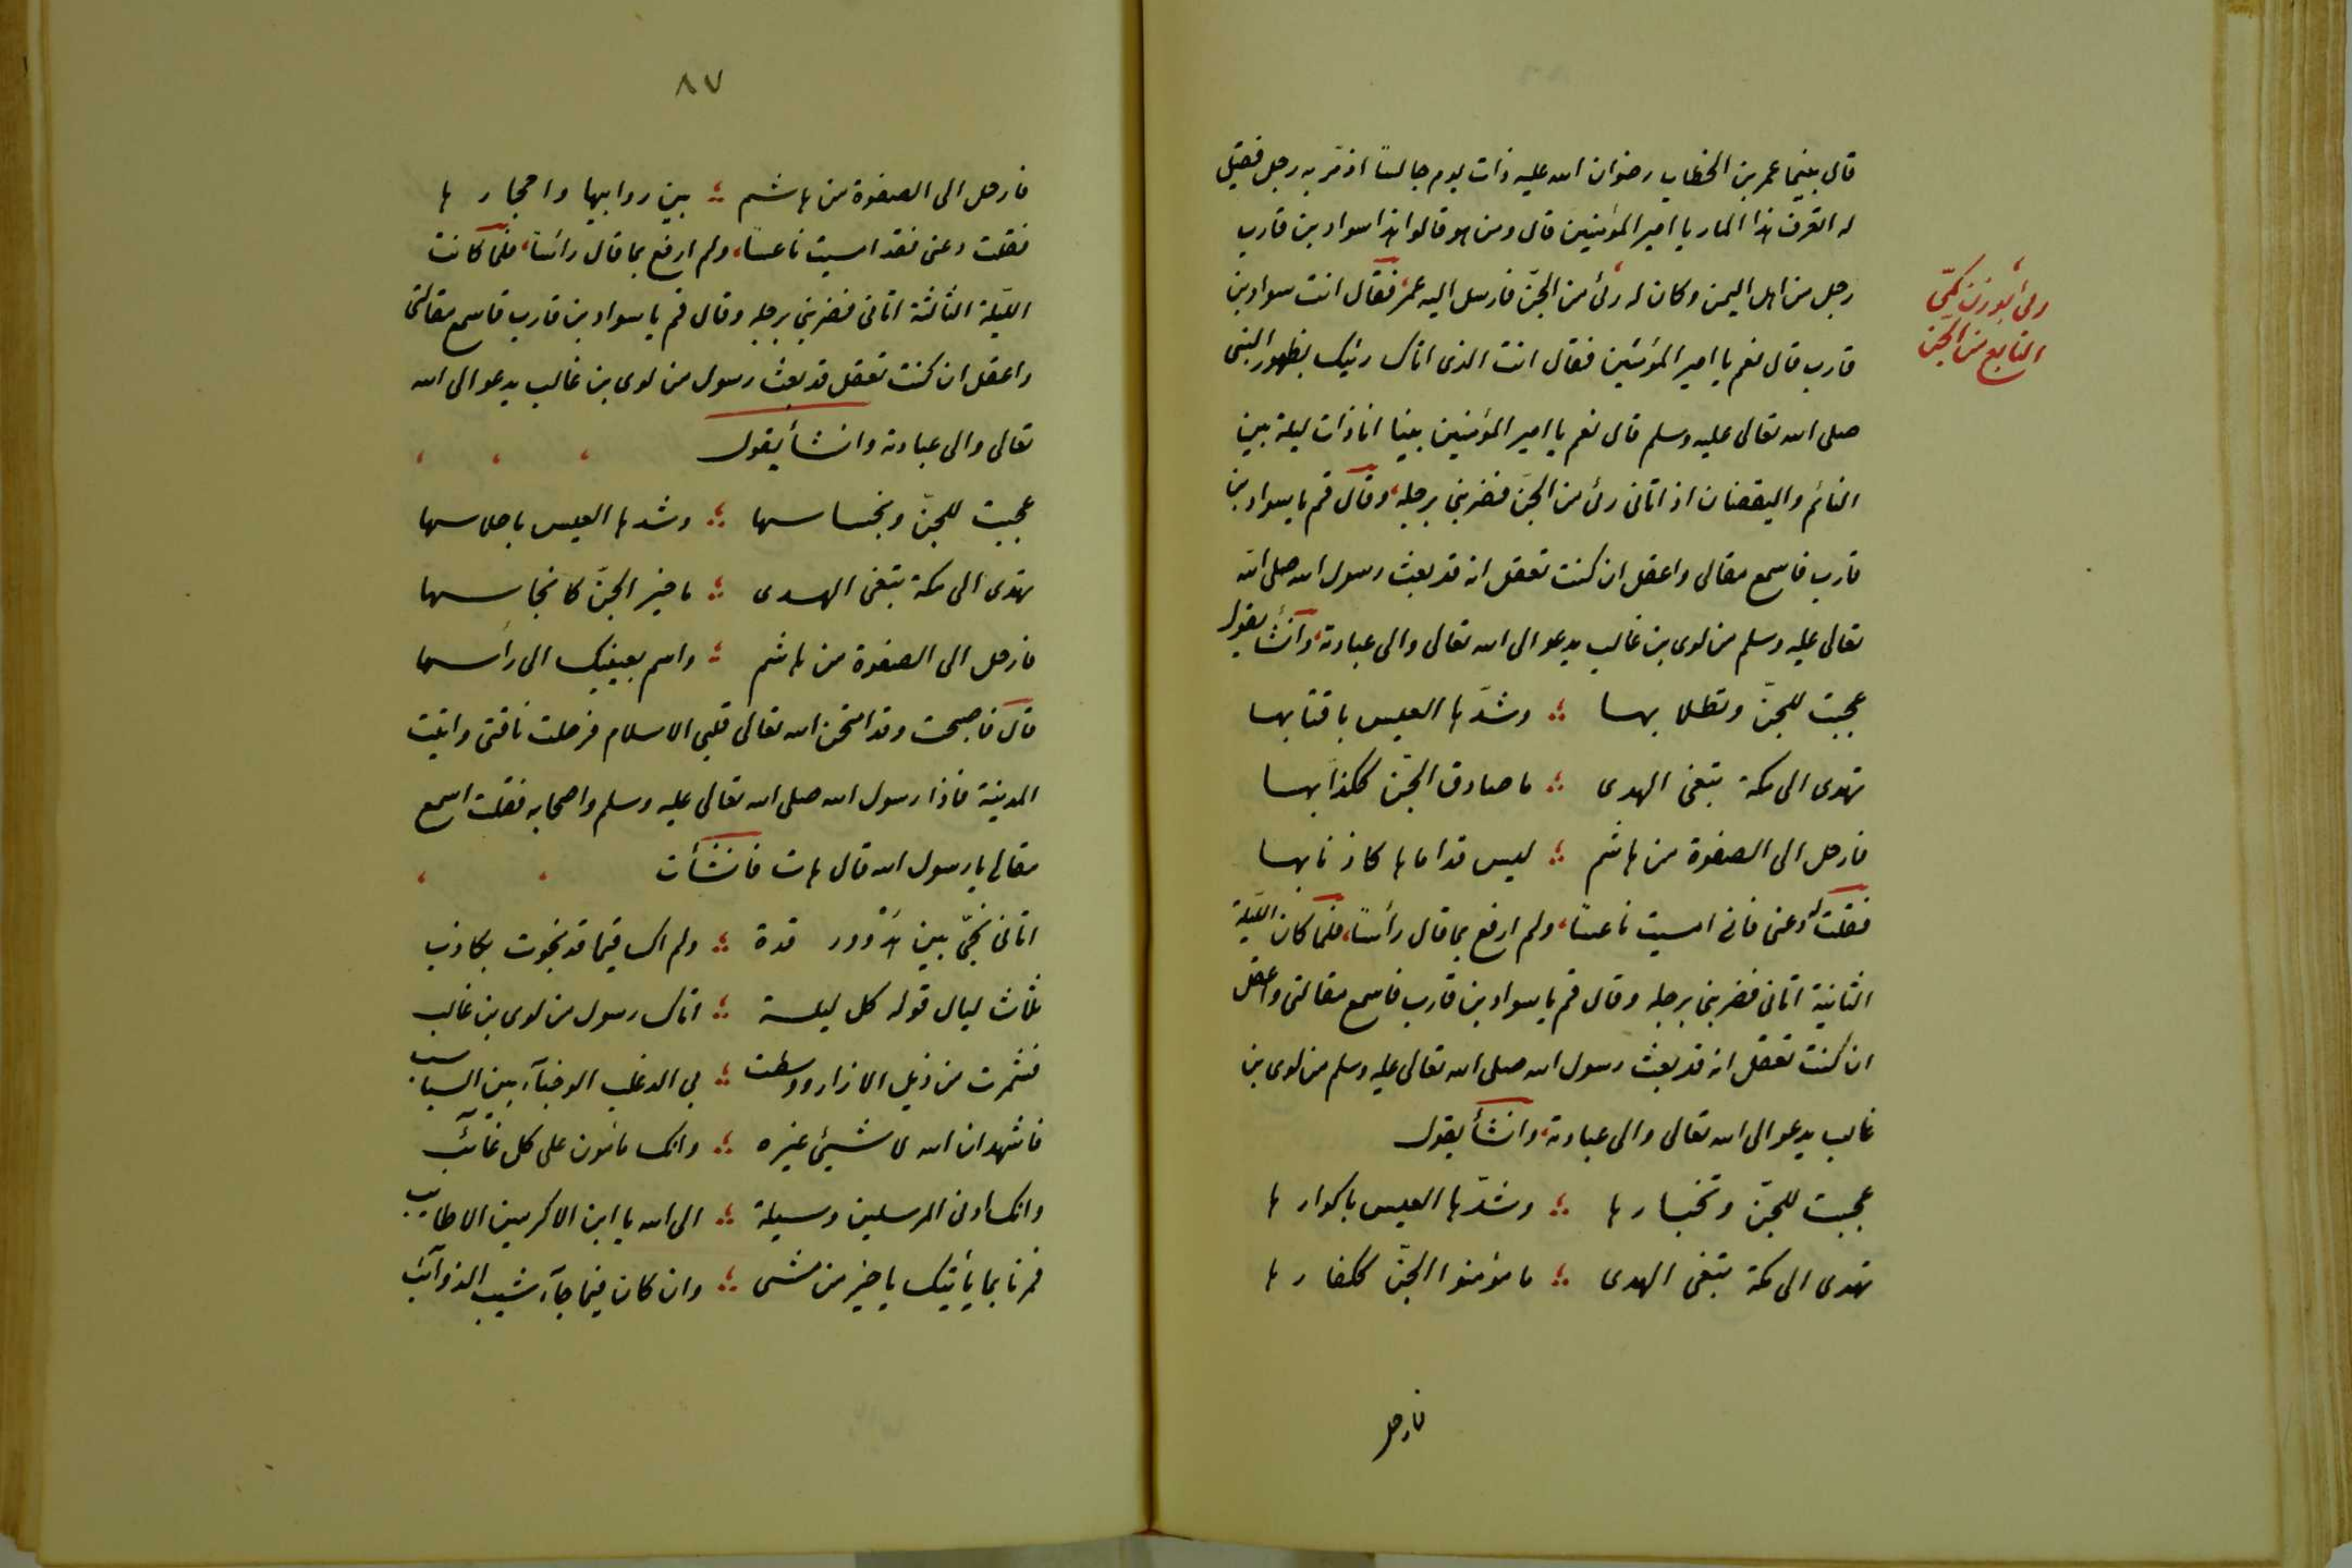 قال بينما عمر بن الخطاب رضوان الله عليه ذات يوم جالسًا اذ مرّ به رجل فقيل
له اتعرف هذا المار يا امير المؤمنين قال ومن هو قالوا هذا سواد بن قارب
رجل من اهل اليمن وكان له رئ من الجنّ فارسل اليه عمر، فقال انت سواد بن
قارب قال نعم يا امير المؤمنين فقال انت الذى اتاك رئيك بظهور النبى
صلى الله تعالى عليه وسلم قال نعم يا امير المؤمنين بينا انا ذات ليلة بين
النائم واليقضان اذ اتانى رئ من الجنّ فضربنى برجله، وقال قم يا سواد بن
قارب فاسمع مقالى واعقل ان كنت تعقل انه قد بعث رسول الله صلى الله
تعالى عليه وسلم من لوى بن غالب يدعو الى الله تعالى والى عبادته، وانشأ يقول
عجبت للجنّ وتطلابها ؛ وشدّها العيس باقتابها
تهوى الى مكة تبتغى الهدى ؛ ما صادق الجنّ ككذابها
فارحل الى الصفوة من هاشم ؛ ليس قداماها كاذنابها
فقلت له دعنى فانى امسيت ناعسًا، ولم ارفع بما قال رأسًا، فلما كان الليلة
الثانية اتانى فضربنى برجله وقال قم يا سواد بن قارب فاسمع مقالتى واعقل
ان كنت تعقل انه قد بعث رسول الله صلى الله تعالى عليه وسلم من لوى بن
غالب يدعو الى الله تعالى والى عبادته، وانشأ يقول
عجبت للجنّ وتخبارها ؛ وشدّها العيس باكوارها
تهوى الى مكة تبتغى الهدى ؛ ما مؤمنوا الجنّ ككفارها
فارحل
التابع من الجن
٨٧
فارحل الى الصفوة من هاشم ؛ بين روابيها واحجارها
فقلت دعنى فقد امسيت ناعسًا، ولم ارفع بما قال رأسًا، فلما كانت
الليلة الثالثة اتانى فضربنى برجله وقال قم يا سواد بن قارب فاسمع مقالتى
واعقل ان كنت تعقل قد بعث رسول من لوى بن غالب يدعو الى الله
تعالى والى عبادته وانشأ يقول
عجبت للجنّ وتجساسها ؛ وشدها العيس باحلاسها
تهوى الى مكة تبتغى الهدى ؛ ما خير الجنّ كانجاسها
فارحل الى الصفوة من هاشم ؛ واسم بعينيك الى رأسها
قال فاصبحت وقد امتحن الله تعالى قلبى الاسلام فرحلت ناقتى واتيت
المدينة فاذا رسول الله صلى الله تعالى عليه وسلم واصحابه فقلت اسمع
مقالى يا رسول الله قال هات فانشأت
اتانى نجىّ بين قدة ؛ ولم اك فيما قد نجوت بكاذب
ثلاث ليال قوله كل ليلة ؛ اتاك رسول من لوى بن غالب
فشمرت من ذيل الازار ووسطت ؛ بى الدغلب الوجناء بين السباسب
فاشهد ان الله لا شيئ غيره ؛ وانك مأمون على كل غائب
وانك اولى المرسلين وسيلة ؛ الى الله يا ابن الاكرمين الاطايب
فمرنا بما يأتيك يا خير من مشى ؛ وان كان فيما جاء شيب الذوائب